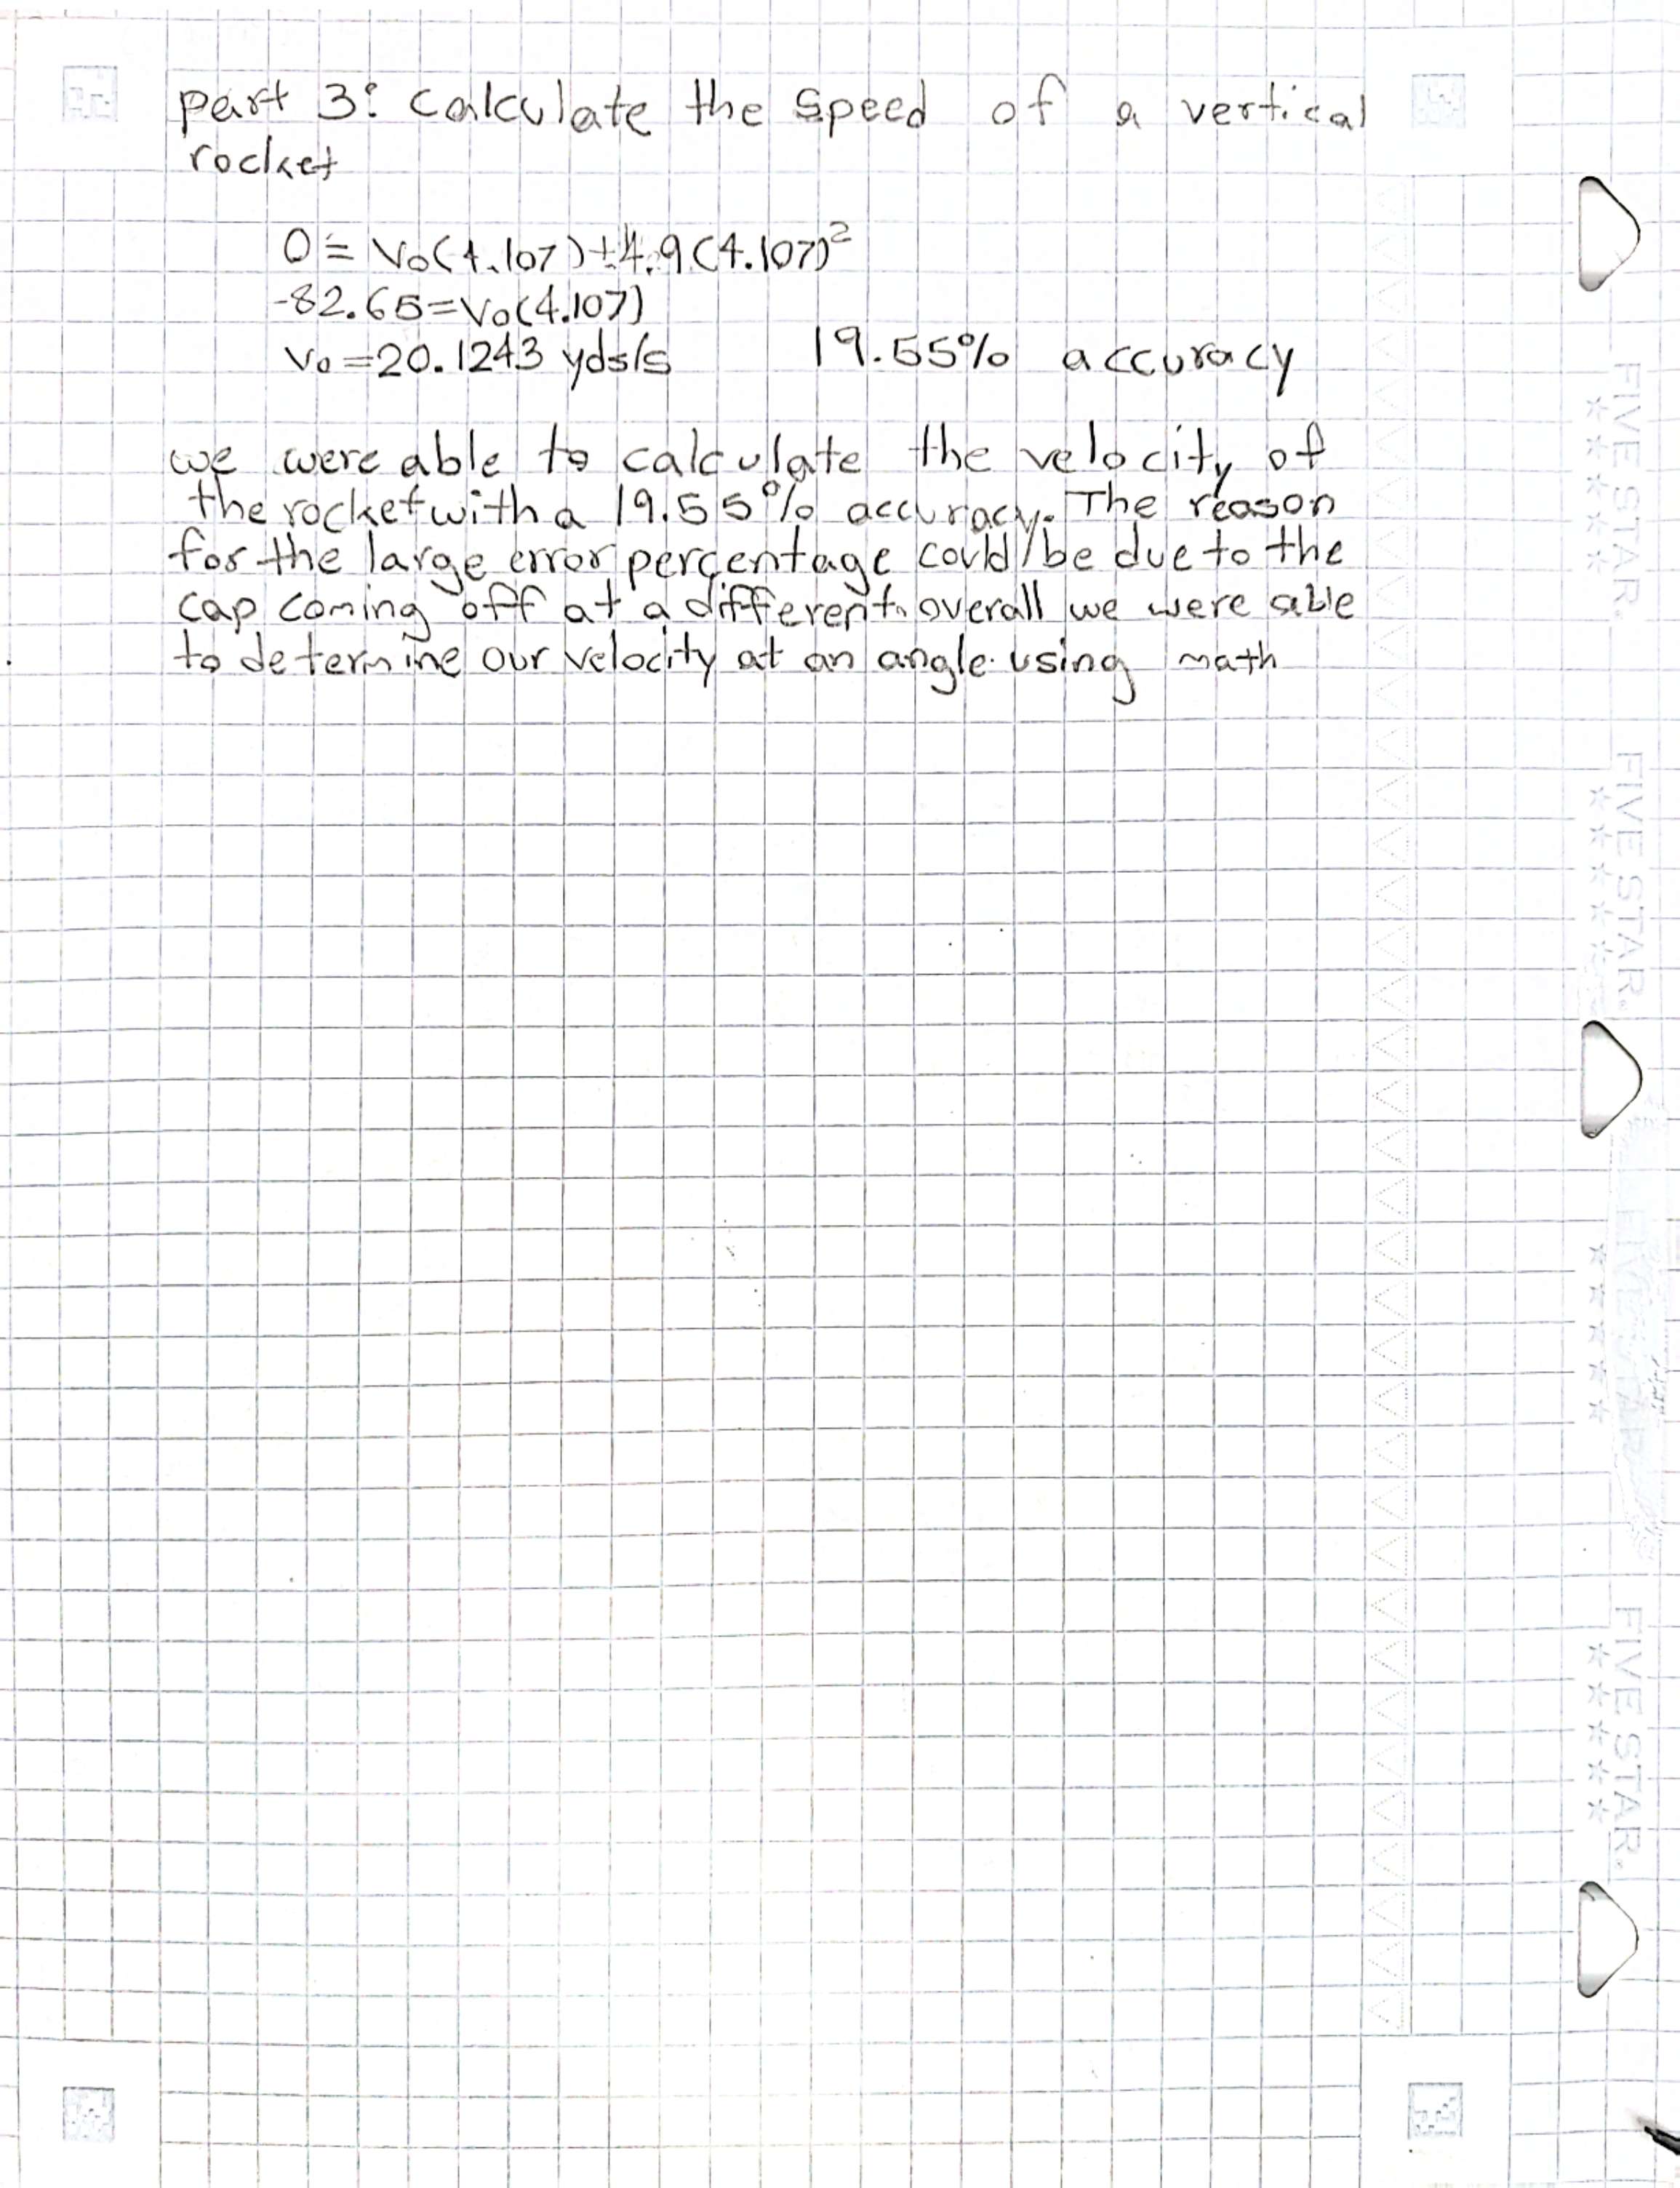 part 3: Calculate the speed of a vertical
rocket
0 = V₀(4.107)+4.9(4.107)²
-82.65=V₀(4.107)
V₀=20.1243 yds/s 19.55% accuracy
we were able to calculate the velocity of
the rocket with a 19.55% accuracy. The reason
for the large error percentage could be due to the
cap coming off at a different. overall we were able
to determine our velocity at an angle using math
FIVE STAR.
FIVE STAR.
FIVE STAR.